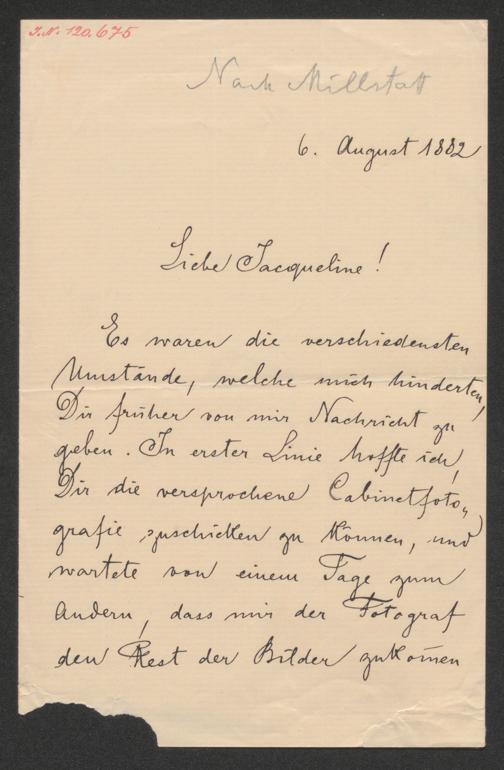 J. N. 120.675
Nach Millstatt
6. August 1882
Liebe Jacqueline!
Es waren die verschiedensten
Umstände, welche mich hinderten,
Dir früher von mir Nachricht zu
geben. In erster Linie hoffte ich,
Dir die versprochene Cabinetfoto„
grafie zuschicken zu können, und
wartete von einem Tage zum
Andern, dass mir der Fotograf
den Rest der Bilder zukom̄en